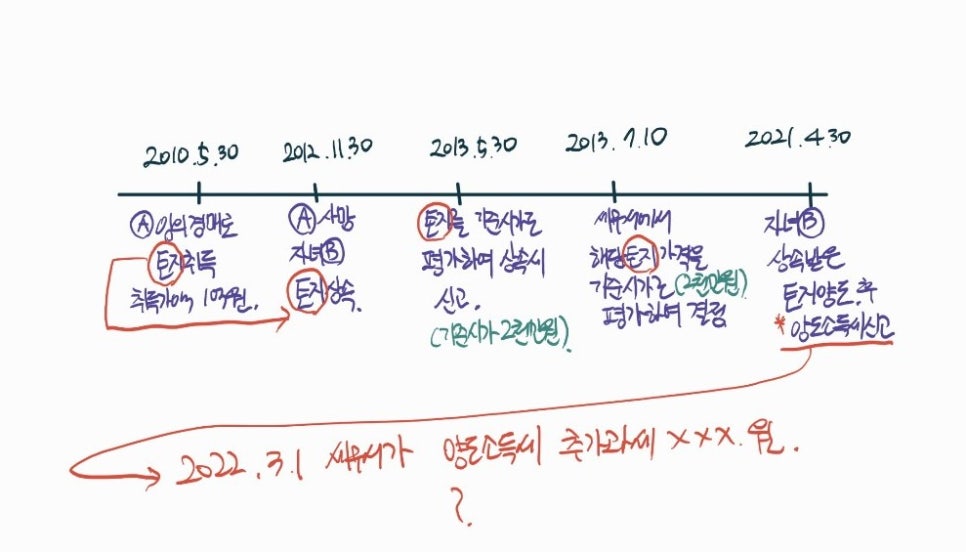 2010.5.30
2012.11.30
2013.5.30
2013.7.10
2021.4.30
Ⓐ임의경매로
토지취득
취득가액 10억원.
Ⓐ사망
자녀Ⓑ
토지상속.
토지를 기준시가로
평가하여 상속세
신고.
(기준시가 2천만원).
세무서에서
해당토지가격을
기준시가로 (2천만원)
평가하여 결정
자녀Ⓑ
상속받은
토지양도.후
*양도소득세신고
2022.3.1 세무서가 양도소득세 추가과세 XXX.원.
?